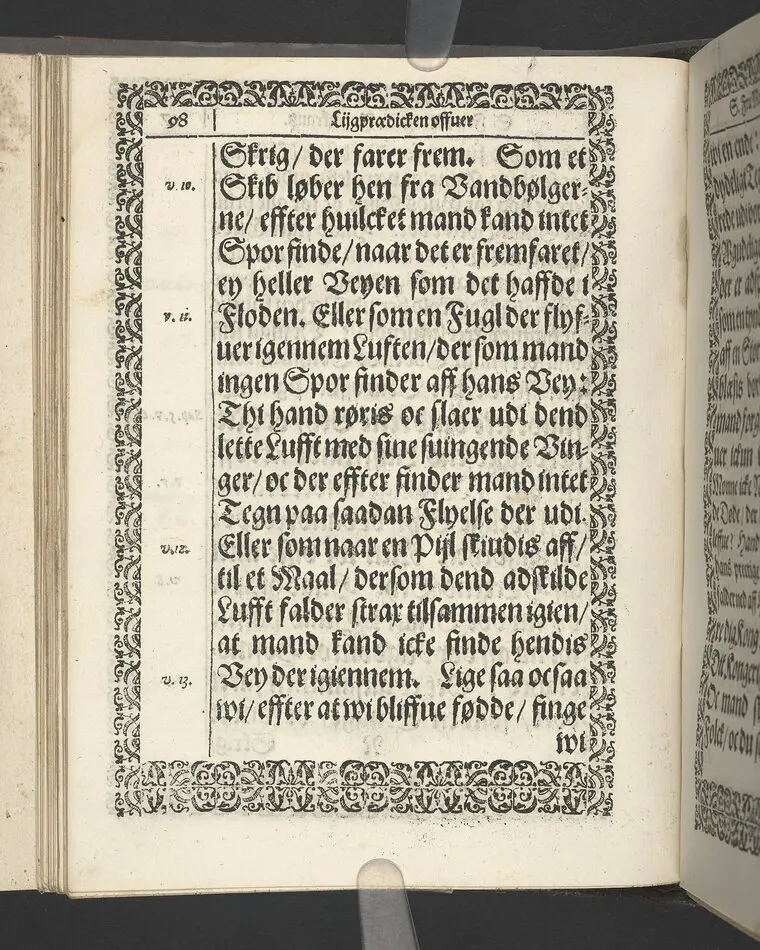 98
Lijgprædicken offuer
Skrig/ der farer frem. Som et
v. 10.
Skib løber hen fra Vandbølger-
ne/ effter huilcket mand kand intet
Spor finde/ naar det er fremfaret/
ey heller Veyen som det haffde i
v. 11.
Floden. Eller som en Fugl der flyf-
uer igennem Luften/ der som mand
ingen Spor finder aff hans Vey:
Thi hand røris oc slaer udi dend
lette Lufft med sine suingende Vin-
ger/ oc der effter finder mand intet
Tegn paa saadan Flyelse der udi.
v. 12.
Eller som naar en Pijl skiudis aff/
til et Maal/ dersom dend adskilde
Lufft falder strax tilsammen igien/
at mand kand icke finde hendis
v. 13.
Vey der igiennem. Lige saa oc saa
wi/ effter at wi bliffue fødde/ finge
wi